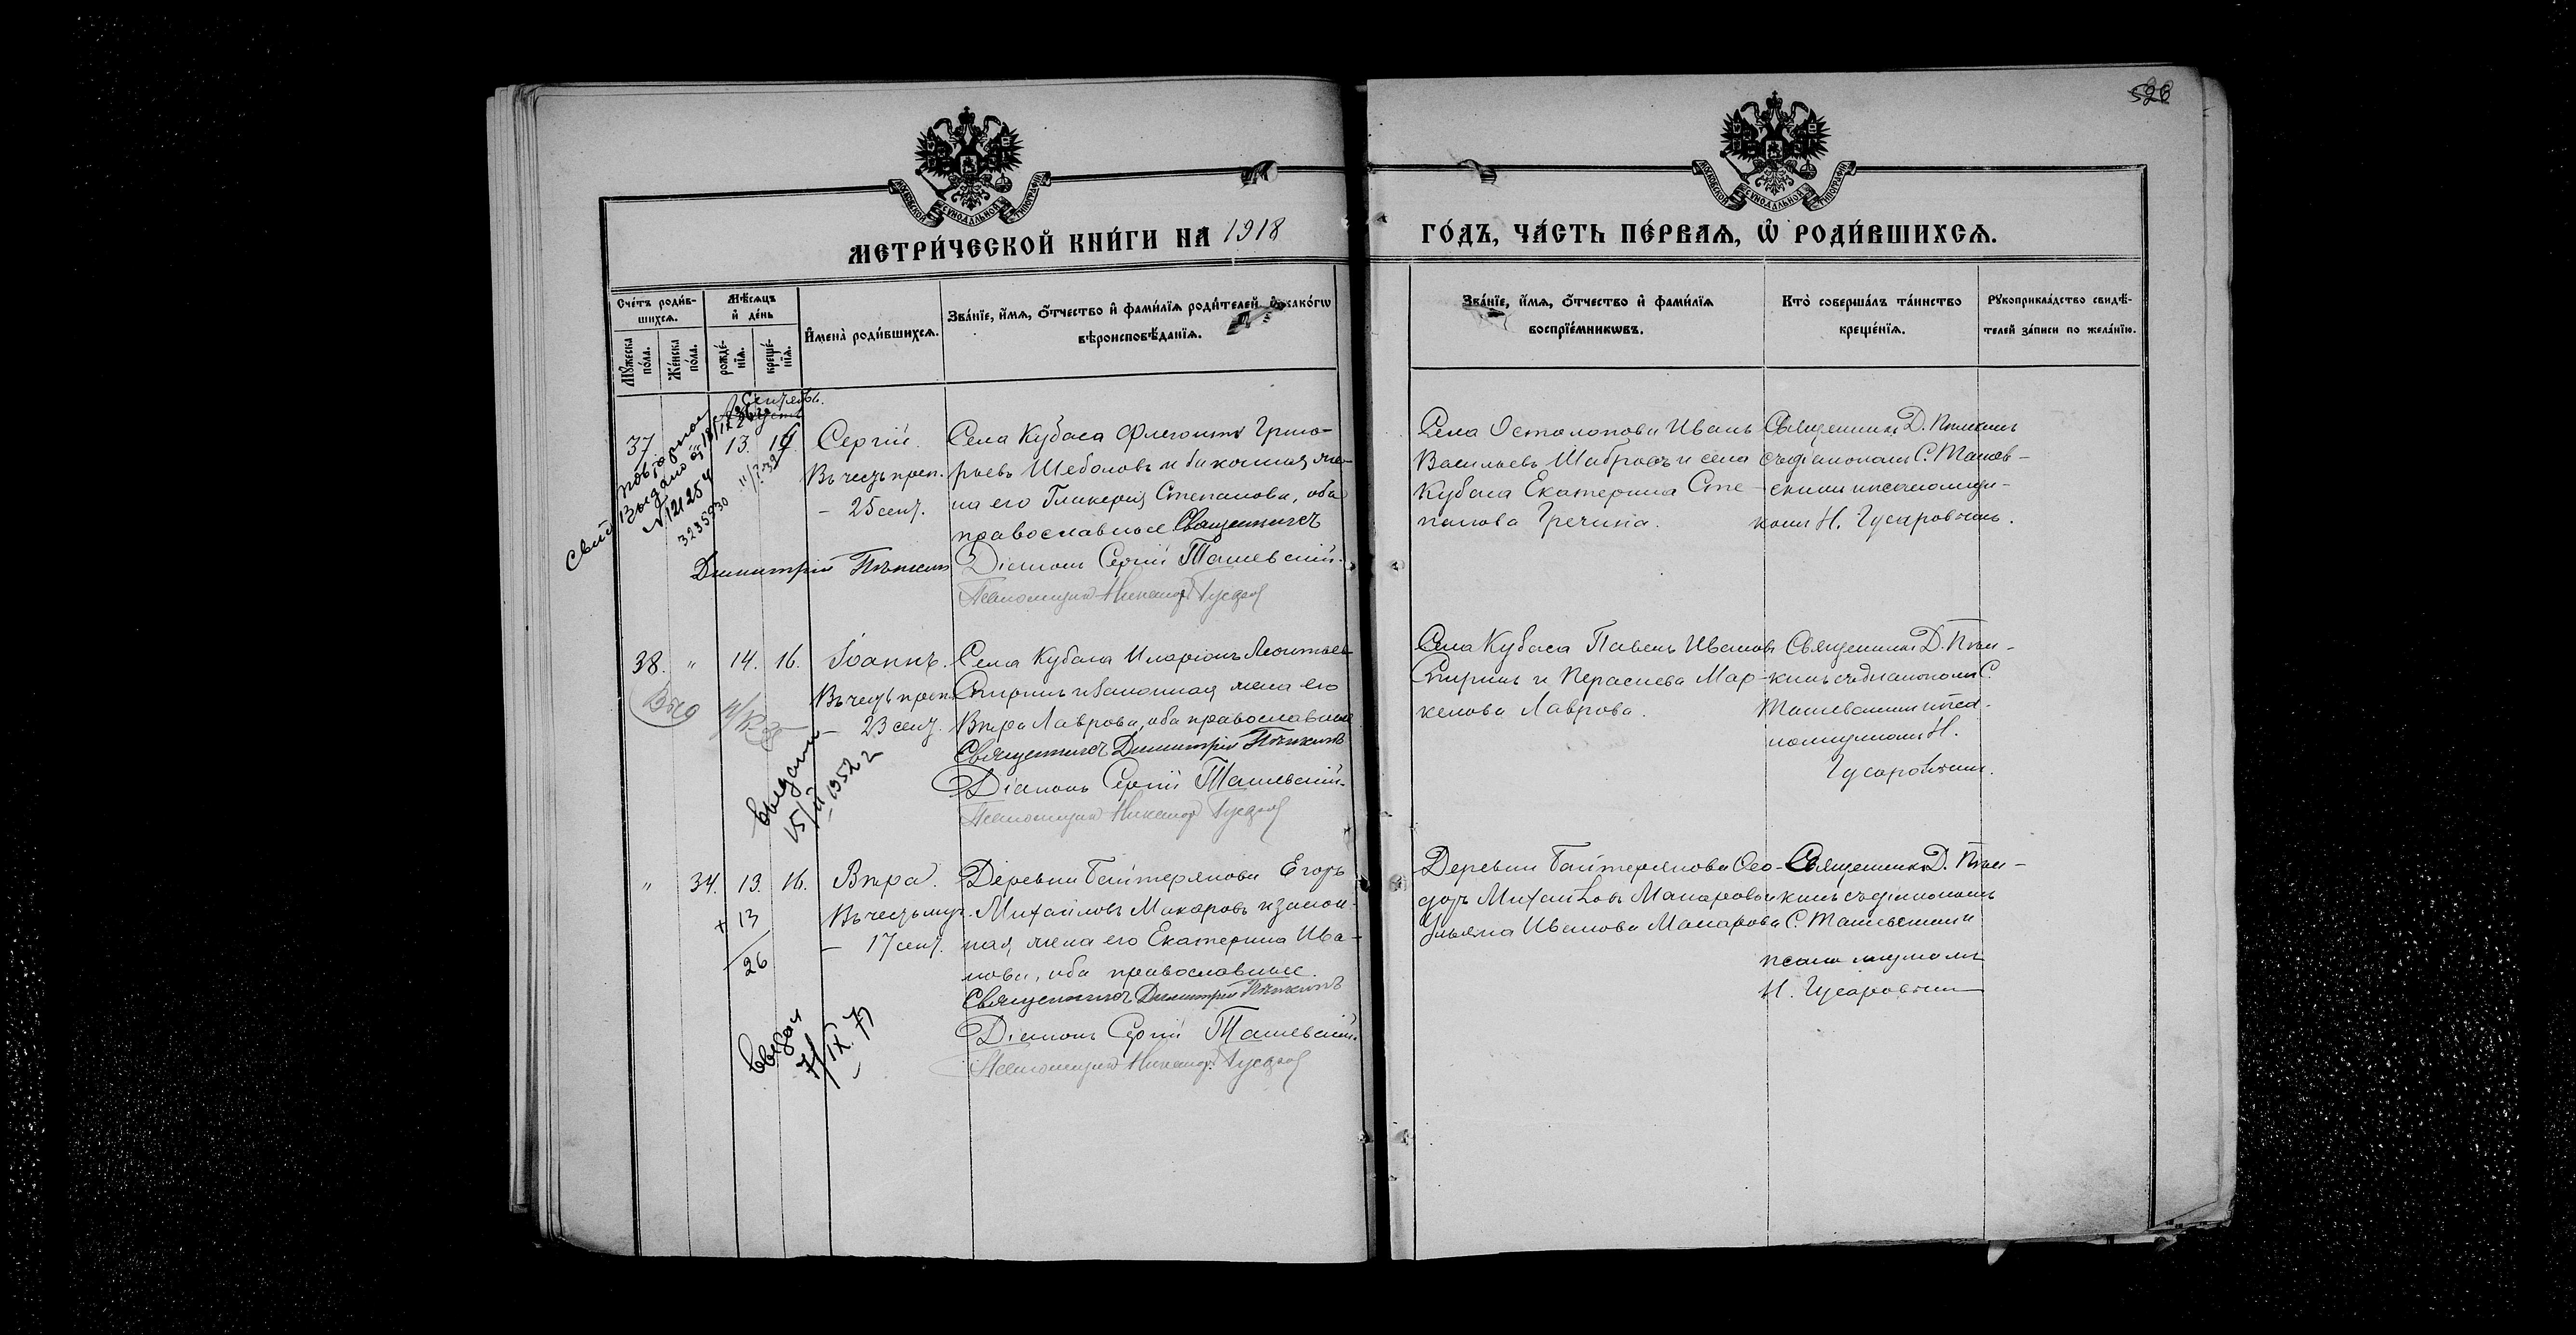 МЕТРИЧЕСКОЙ КНИГИ НА 1918
ГОДЪ, ЧАСТЬ ПЕРВАЯ, Ѡ РОДИВШИХСЯ.
МОСКОВСКОЙ СѴНОДАЛЬНОЙ ТИПОГРАФІИ
МОСКОВСКОЙ СѴНОДАЛЬНОЙ ТИПОГРАФІИ
Счетъ родив-
шихся.
Мѣсяцъ
и день
Мужеска пола.
Женска пола.
рожде-
нія.
креще-
нія.
Имена родившихся.
Званіе, имя, отчество и фамилія родителей, и какогѡ
вѣроисповѣданія.
Званіе, имя, отчество и фамилія
воспріемникωвъ.
Кто совершалъ таинство
крещенія.
Рукоприкладство свидѣ-
телей записи по желанію.
Сентябрь.
37. 13. Сергій.
Въ честь преп.
– 25 сент.
Села Кубаса Флегонтъ Григо-
рьевъ Шеболовъ и законная же-
на его Гликерія Степанова, оба
православные Священникъ
Димитрій Пѣнкинъ
Діаконъ Сергій Ташевскій.
Псаломщикъ Никаноръ Гусаров
Села Остолопова Иванъ
Васильевъ Шабровъ и села
Кубаса Екатерина Сте-
панова Гречина.
Священникъ Д. Пѣнкинъ
съ діакономъ С. Ташев-
скимъ и псаломщи-
комъ Н. Гусаровымъ.
Повторное
Выдано
N 121254
3235930
38. " 14. 16. Іоаннъ.
Въ честь преп.
– 23 сент.
Села Кубаса Иларіонъ Леонтьевъ
Спиринъ и законная жена его
Вѣра Лаврова, оба православные
Священникъ Димитрій Пѣнкинъ
Діаконъ Сергій Ташевскій.
Псаломщикъ Никаноръ Гусаров
Села Кубаса Павелъ Ивановъ
Спиринъ и Параскева Мар-
келова Лаврова.
Священникъ Д. Пѣн-
кинъ съ діакономъ С.
Ташевскимъ и пса-
ломщикомъ Н.
Гусаровымъ.
выдано
1952 г
" 34. 13. 16. Вѣра.
+ 13
26
Въ честь муч.
– 17 сент.
Деревни Байтерякова Егоръ
Михаиловъ Макаровъ и закон-
ная жена его Екатерина Ива-
нова, оба православные.
Священникъ Димитрій Пѣнкинъ
Діаконъ Сергій Ташевскій.
Псаломщикъ Никаноръ Гусаров
Деревни Байтерякова Ѳео-
доръ Михаиловъ Макаровъ и
Ульяна Иванова Макарова
Священникъ Д. Пѣн-
кинъ съ діакономъ
С. Ташевскимъ и
псаломщикомъ
Н. Гусаровымъ
выдан
7/IX.71